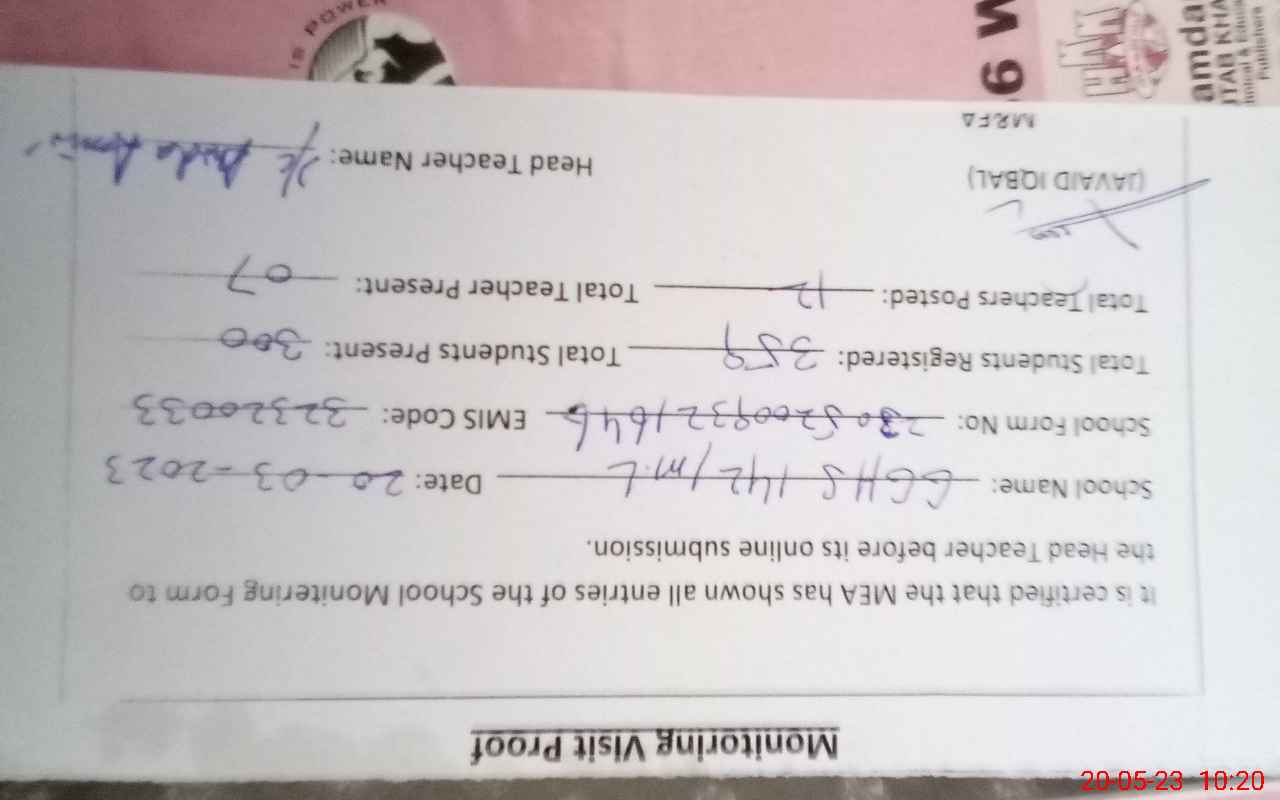 Monitoring Visit Proof
It is certified that the MEA has shown all entries of the School Monitering Form to
the Head Teacher before its online submission.
School Name: GGHS 142/M.L Date: 20-03-2023
School Form No: EMIS Code: 32320033
Total Students Registered: 359 Total Students Present: 300
Total Teachers Posted: 12 Total Teacher Present: 07
(JAVAID IQBAL) Head Teacher Name:
IS POWER
6 W
amda
TAB KHA
Publishers
20-05-23 10:20